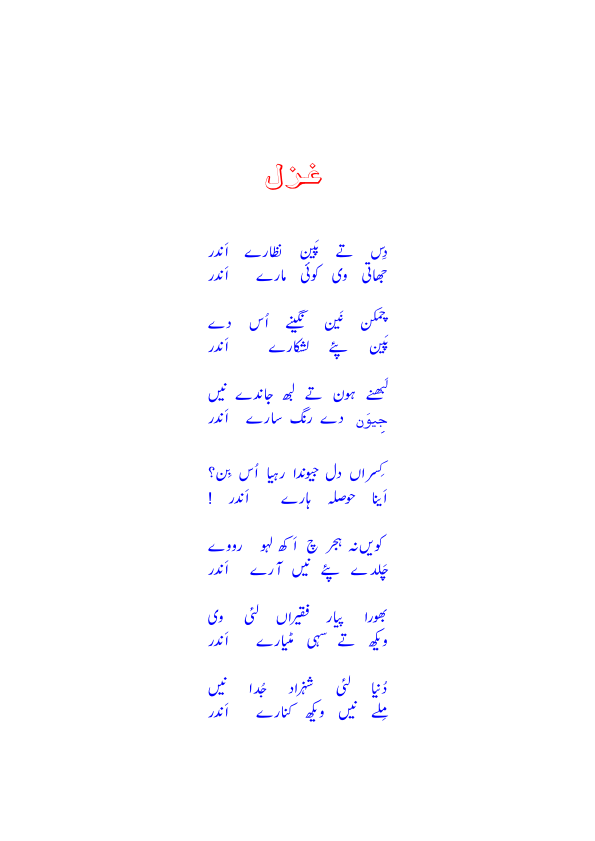 غزل
دِس تے پَین نظارے اَندر
جھاتی وی کوئی مارے اَندر
چمکن نَین نگینے اُس دے
پَین پئے لشکارے اَندر
لَبھنے ہون تے لبھ جاندے نیں
جِیوَن دے رنگ سارے اَندر
کِسراں دل جیوندا رہیا اُس بِن؟
اَینا حوصلہ ہارے اَندر !
کویں نہ ہجر چ اَکھ لہو رووے
چَلدے پئے نیں آرے اَندر
بھورا پیار فقیراں لئی وی
ویکھ تے سہی مٹیارے اَندر
دُنیا لئی شہزاد جُدا نیں
مِلے نیں ویکھ کنارے اَندر